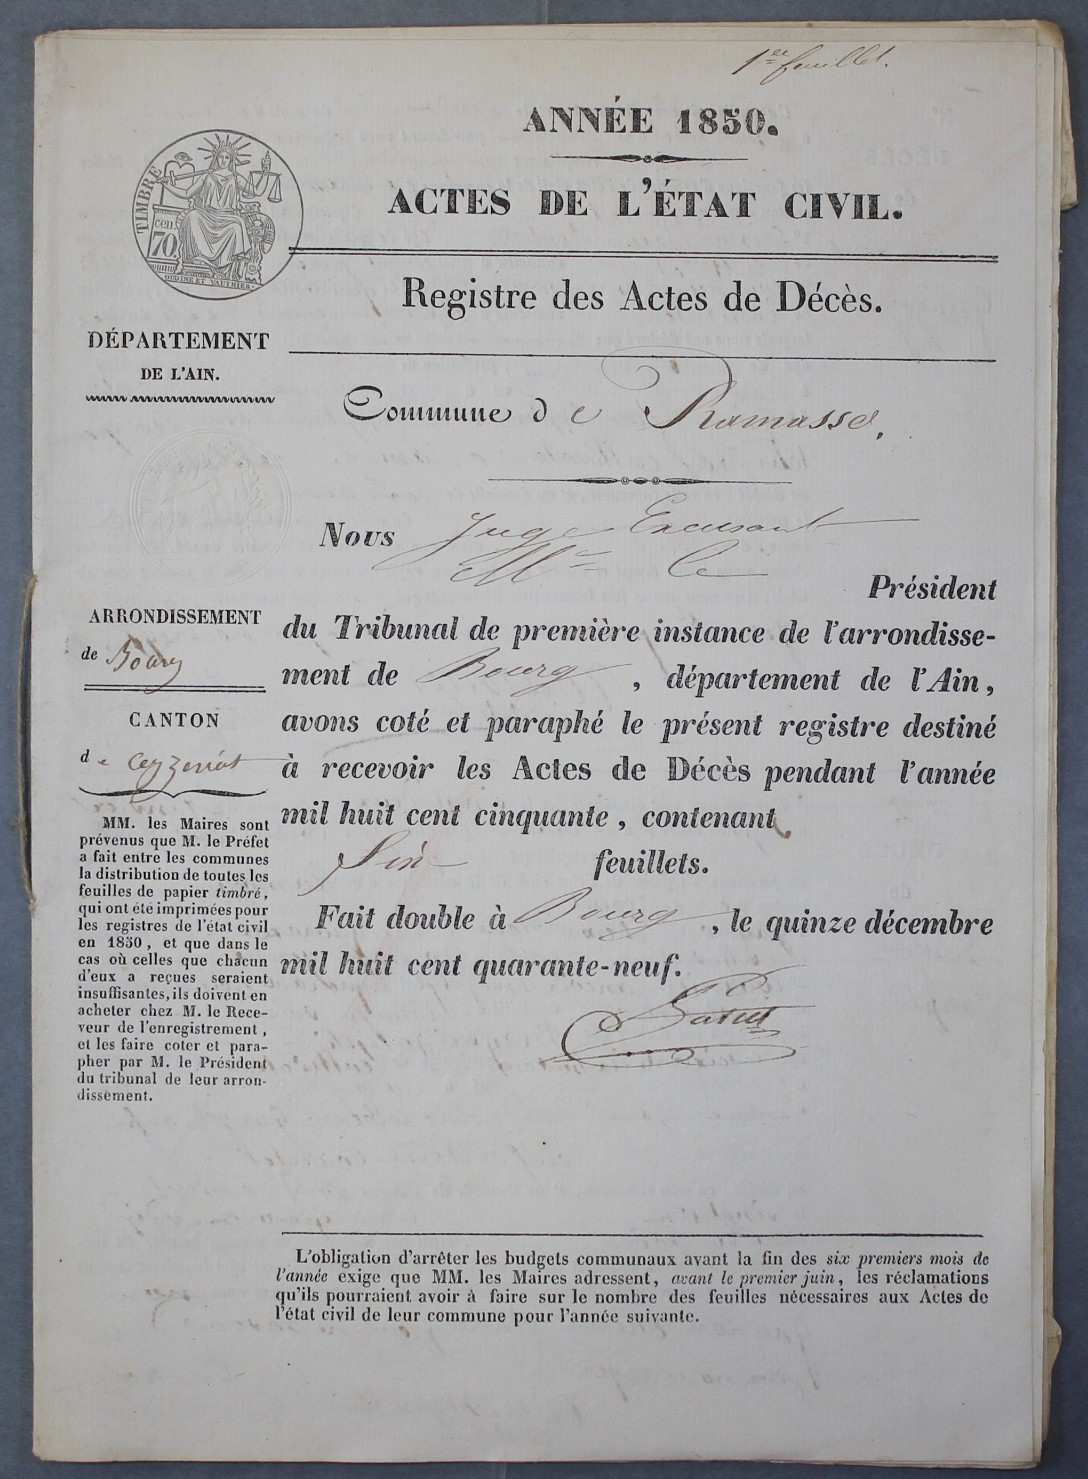 1er feuillet.
ANNÉE 1850.
ACTES DE L'ÉTAT CIVIL.
TIMBRE
cen
70
OUDINÉ ET VAUTHIER.
Registre des Actes de Décès.
DÉPARTEMENT
DE L'AIN.
Commune de Ramasse.
Nous Juge Excusant
Mr le
Président
du Tribunal de première instance de l'arrondisse-
ment de Bourg, département de l'Ain,
avons coté et paraphé le présent registre destiné
à recevoir les Actes de Décès pendant l'année
mil huit cent cinquante, contenant
Six feuillets.
Fait double à Bourg, le quinze décembre
mil huit cent quarante-neuf.
ARRONDISSEMENT
de Bourg
CANTON
de Ceyzeriat
MM. les Maires sont
prévenus que M. le Préfet
a fait entre les communes
la distribution de toutes les
feuilles de papier timbré,
qui ont été imprimées pour
les registres de l'état civil
en 1850, et que dans le
cas où celles que chacun
d'eux a reçues seraient
insuffisantes, ils doivent en
acheter chez M. le Rece-
veur de l'enregistrement,
et les faire coter et para-
pher par M. le Président
du tribunal de leur arron-
dissement.
L'obligation d'arrêter les budgets communaux avant la fin des six premiers mois de
l'année exige que MM. les Maires adressent, avant le premier juin, les réclamations
qu'ils pourraient avoir à faire sur le nombre des feuilles nécessaires aux Actes de
l'état civil de leur commune pour l'année suivante.